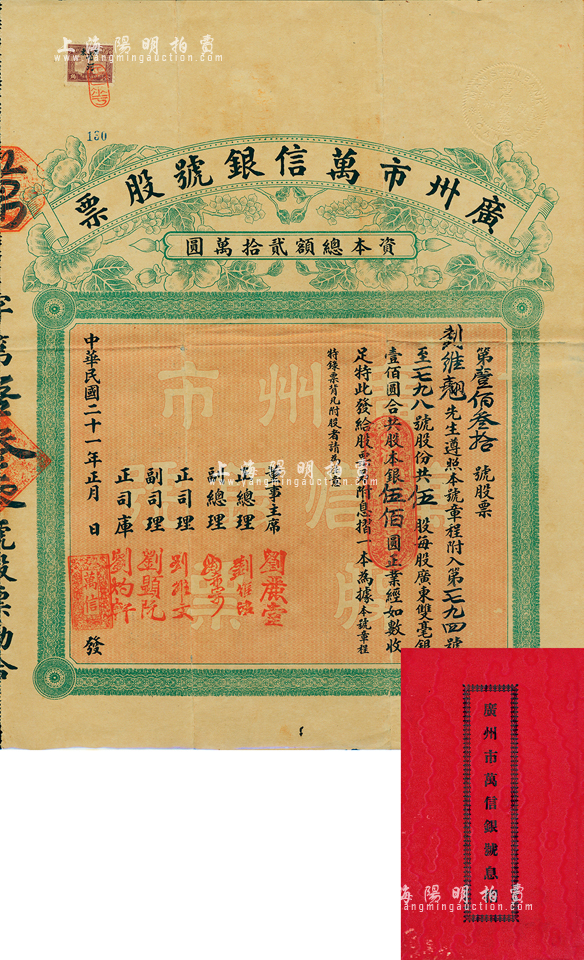 上海陽明拍賣
www.yangmingauction.com
130
廣州市萬信銀號股票
資本總額貳拾萬圓
第壹佰叁拾號股票
劉維翹先生遵照本號章程附入第一七九四號
至一七九八號股份共伍股每股廣東雙毫銀
壹佰圓合共股本銀伍佰圓正業經如數收
足特此發給股票附息摺一本為據本號章程
特錄票背凡附股者請為
主席
總理
副總理
正司理
副司理
正司庫
劉麗堂
劉維文
劉顯阮
劉灼軒
萬信
中華民國二十一年正月 日 發
號股票勘合
上海陽明拍賣
www.yangmingauction.com
廣州市萬信銀號息摺
上海陽明拍賣
www.yangmingauction.com